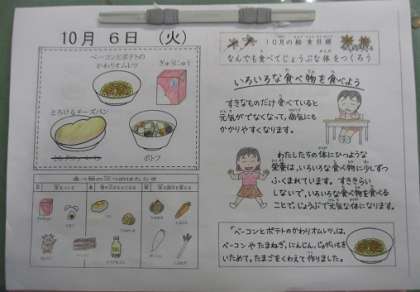 10月 6日 (火)
ベーコンとポテトの
かわりオムレツ
ぎゅうにゅう
とろけるチーズパン
ポトフ
10月の給食目標
なんでも食べてじょうぶな体をつくろう
いろいろな食べ物を食べよう
すきなものだけ食べていると
元気がでなくなって、病気にも
かかりやすくなります。
わたしたちの体にひつような
栄養は、いろいろな食べ物に少しずつ
ふくまれています。すききらい
しないで、いろいろな食べ物を食べる
ことで、じょうぶで元気な体になります。
「ベーコンとポテトのかわりオムレツ」は、
ベーコンやたまねぎ、にんじん、じゃがいもを
いためて、たまごをくわえて作りました。